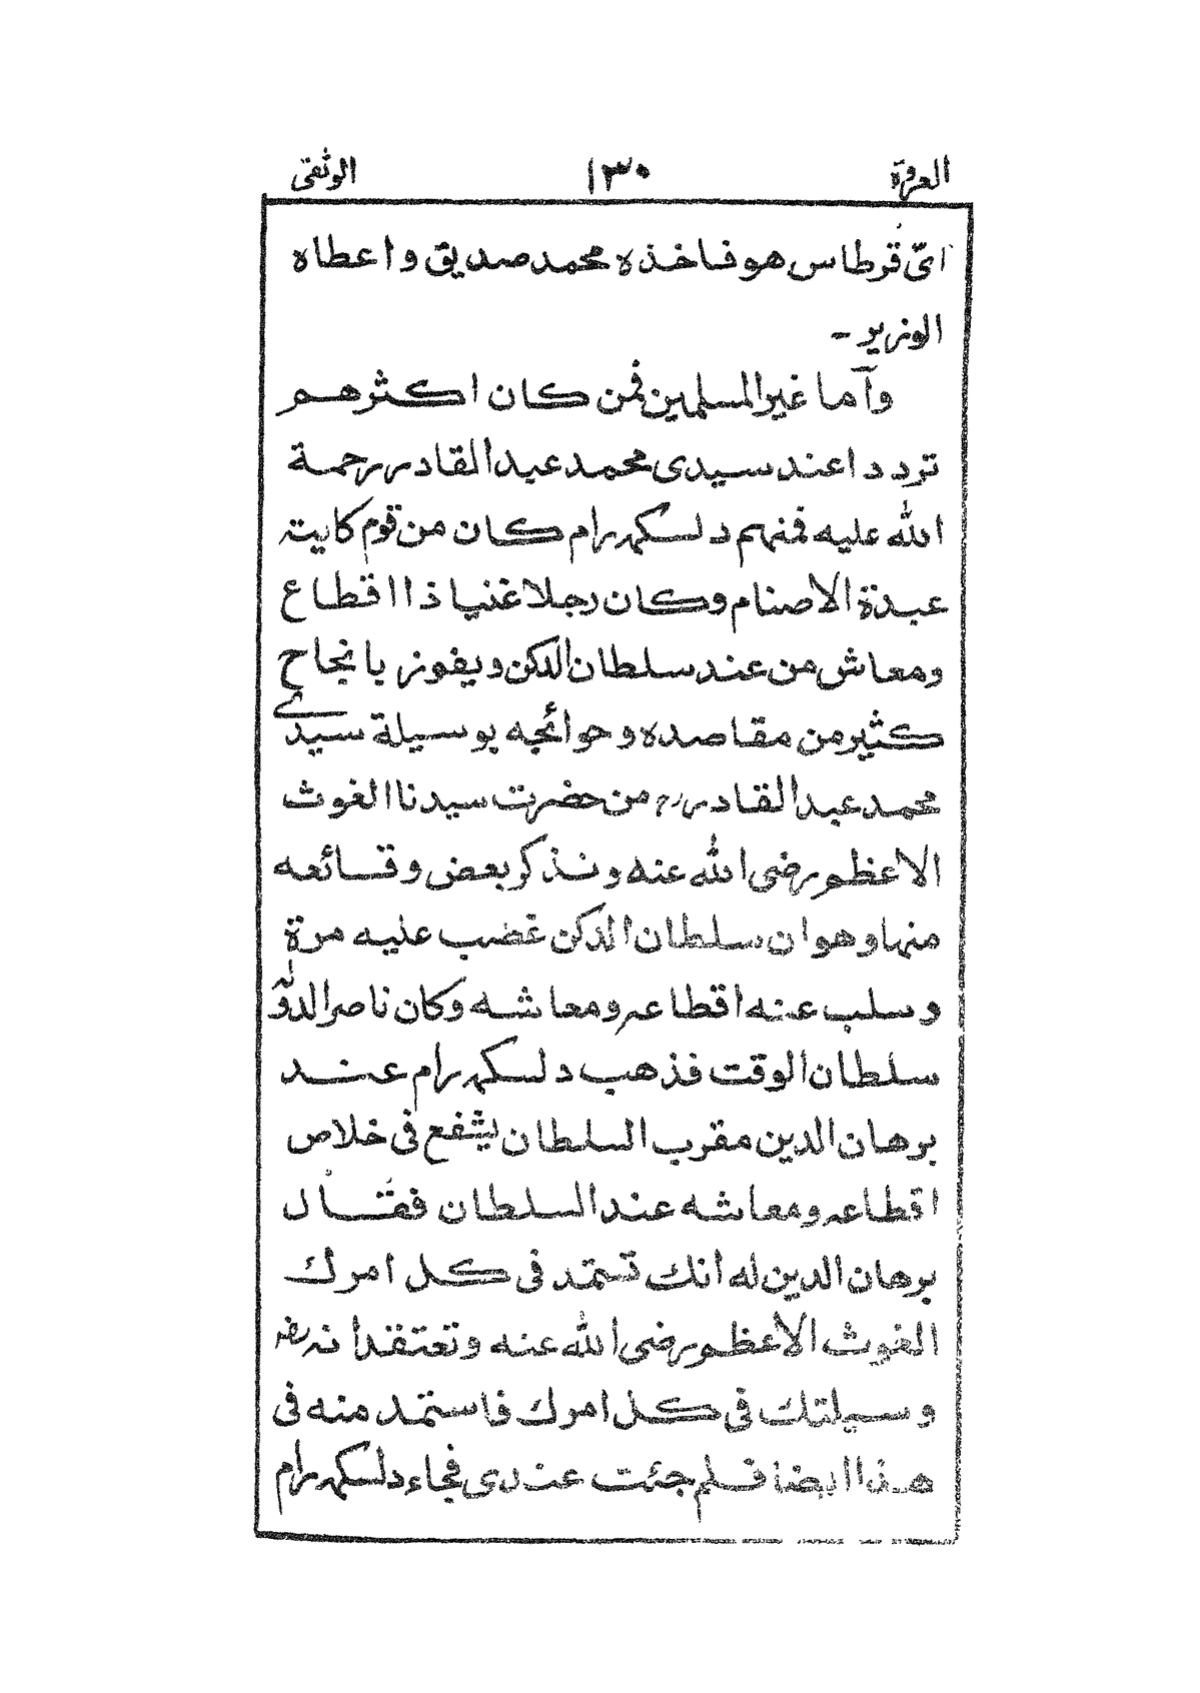 العروة ١٣٠ الوثقى
ایّ قرطاس هو فاخذه محمد صديق واعطاه
الوزير -
وآما غير المسلمين فمن كان اكثرهم
ترددا عند سيدى محمد عبد القادر رحمة
الله عليه فمنهم دلسكهہ رام كان من قوم كايتہ
عبدة الاصنام وكان رجلا غنيا ذا اقطاع
ومعاش من عند سلطان الدكن ويفوز بانجاح
كثير من مقاصده وحوائجه بوسيلة سيدے
محمد عبد القادر رح من حضرت سيدنا الغوث
الاعظم رضى الله عنه ونذكر بعض وقائعه
منها وهو ان سلطان الدكن غضب عليه مرة
وسلب عنه اقطاعہ ومعاشه وكان ناصر الدولة
سلطان الوقت فذهب دلسكهہ رام عند
برهان الدين مقرب السلطان يشفع فى خلاص
اقطاعہ ومعاشه عند السلطان فقال
برهان الدين له انك تستمد فى كل امرك
الغوث الاعظم رضى الله عنه وتعتقد انہ رضہ
وسيلتك فى كل امرك فاستمد منه فى
هذا ايضا فلم جئت عندى فجاء دلسكهہ رام